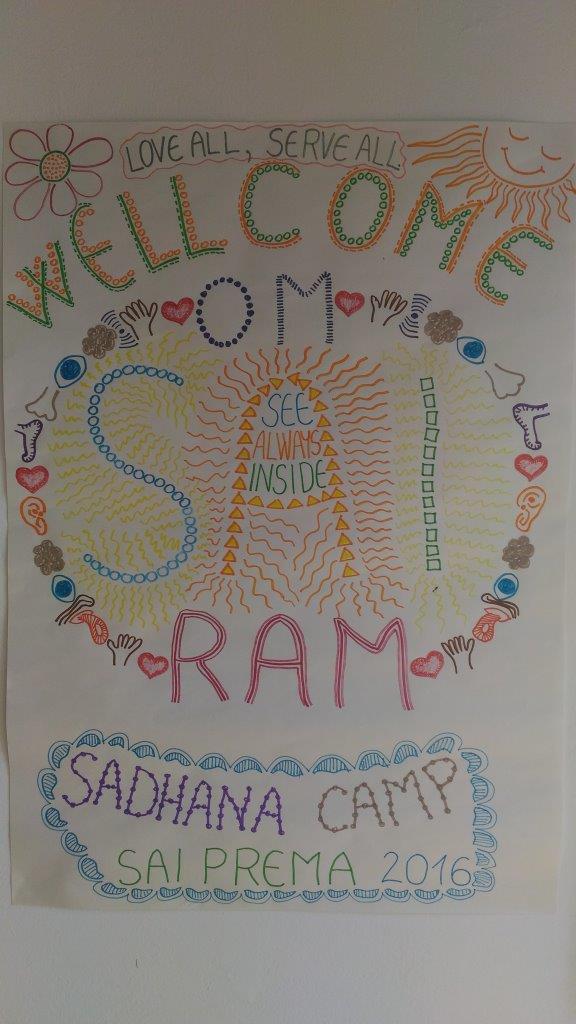 LOVE ALL, SERVE ALL
WELLCOME
OM
SAI
SEE
ALWAYS
INSIDE
RAM
SADHANA CAMP
SAI PREMA 2016